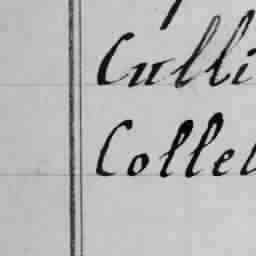 Culli
Colle